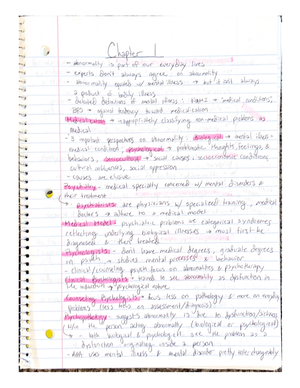 Chapter 1
- Abnormality → part of our everyday lives
- experts don't always agree on abnormality
- Abnormality equated w/ mental illness → but it isn't always
a product of bodily illness
of mental illness : "medical conditions",
toward medication
Medicalization → inappropriately classifying non-medical problems as
medical
- 3 important perspectives on abnormality : Biological → mental illness -
medical condition, psychological → problematic thoughts, feelings, &
behaviours, sociocultural → social causes : socioeconomic conditions,
cultural influences, social oppression
- causes are elusive
Psychiatry - medical specialty concerned w/ mental disorders &
their treatment
Psychiatrists are physicians w/ specialized training, medical
doctors → adhere to a medical model
Medical Model : psychiatric problems are categorical syndromes
reflecting underlying biological illnesses → must first be
diagnosed & then treated
Psychologists - don't have medical degrees, graduate degrees
in psych → studies mental processes & behavior
- clinical/counseling psych focus on abnormalities & psychotherapy
Clinical Psychologists → tends to see abnormality as dysfunction in
psychological nature
Counseling Psychologists → focus less on pathology & more on everyday
problems (less focus on assessment/diagnosis)
Psychopathology - suggests abnormality is due to dysfunction/sickness
the person acting abnormally (biological or psychological)
- both biological & psychological the problem as a
dysfunction originating inside a person
- APA uses mental illness & mental disorder pretty interchangeably